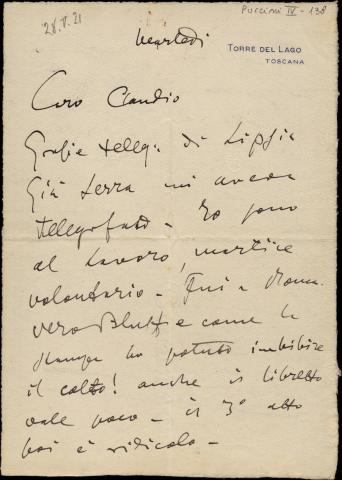 28.V.21
Puccini IV - 138
Martedì
TORRE DEL LAGO
TOSCANA
Caro Claudio
Grazie telegr. di Lipsia
Già Serra mi aveva
telegrafato - Io sono
al lavoro, martire
volontario - Fui a Roma.
vero Bluff e come la
stampa ha potuto imbibire
il colto! anche il libretto
vale poco - il 3º atto
poi è ridicolo -